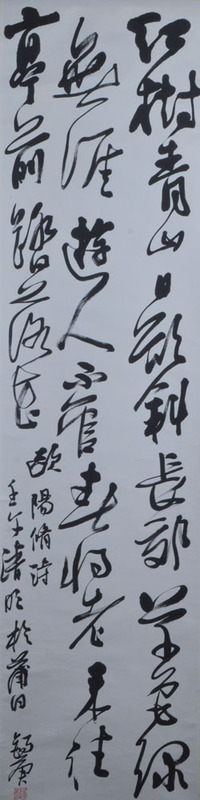 紅樹青山日欲斜長郊草色綠
無涯遊人不管春將老来往
亭前踏落花
歐陽脩詩
壬午清明於蒲